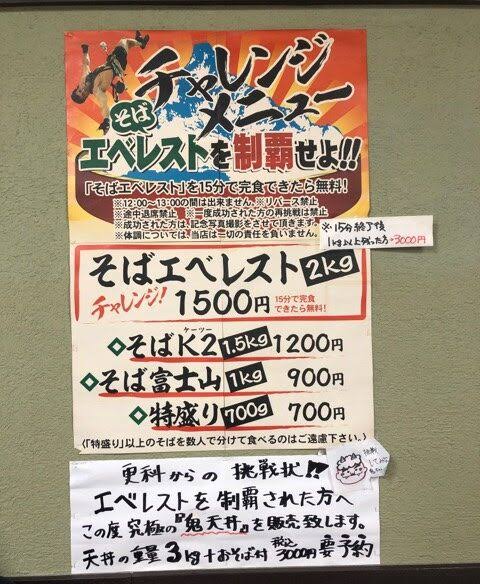 チャレンジ
メニュー
そば
エベレストを制覇せよ!!
「そばエベレスト」を15分で完食できたら無料!
※12:00~13:00の間は出来ません。※リバース禁止
※途中退席禁止 ※一度成功された方の再挑戦は禁止
※成功された方は、記念写真撮影をさせて頂きます。
※体調については、当店は一切の責任を負いません。
※15分終了後
1kg以上残った方→3000円
そばエベレスト 2kg
チャレンジ! 1500円 15分で完食
できたら無料!
ケーツー
◇そばK2 1.5kg 1200円
◇そば富士山 1kg 900円
◇特盛り 700g 700円
〈「特盛り」以上のそばを数人で分けて食べるのはご遠慮下さい。〉
更科からの挑戦状!!
エベレストを制覇された方へ
この度究極の『鬼天丼』を販売致します。
天丼の重量3kg+おそば付 税込3000円 要予約